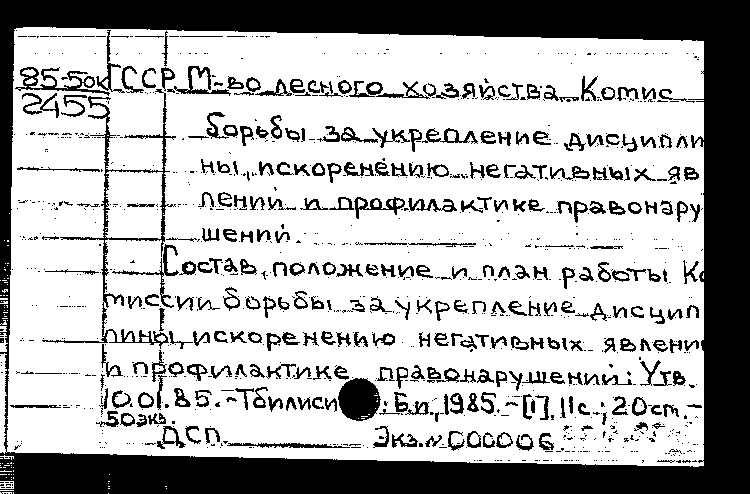 85-5ок ГССР. М-во лесного хозяйства. Комис
2455
борьбы за укрепление дисципли
ны, искоренению негативных яв
лений и профилактике правонару
шений.
Состав, положение и план работы Ко
миссии борьбы за укрепление дисцип
лины, искоренению негативных явлени
и профилактике правонарушений: Утв.
10.01.85. - Тбилиси: Б.и, 1985. - [1], 11с.; 20см. -
50экз.
ДСП. Экз.N 000006